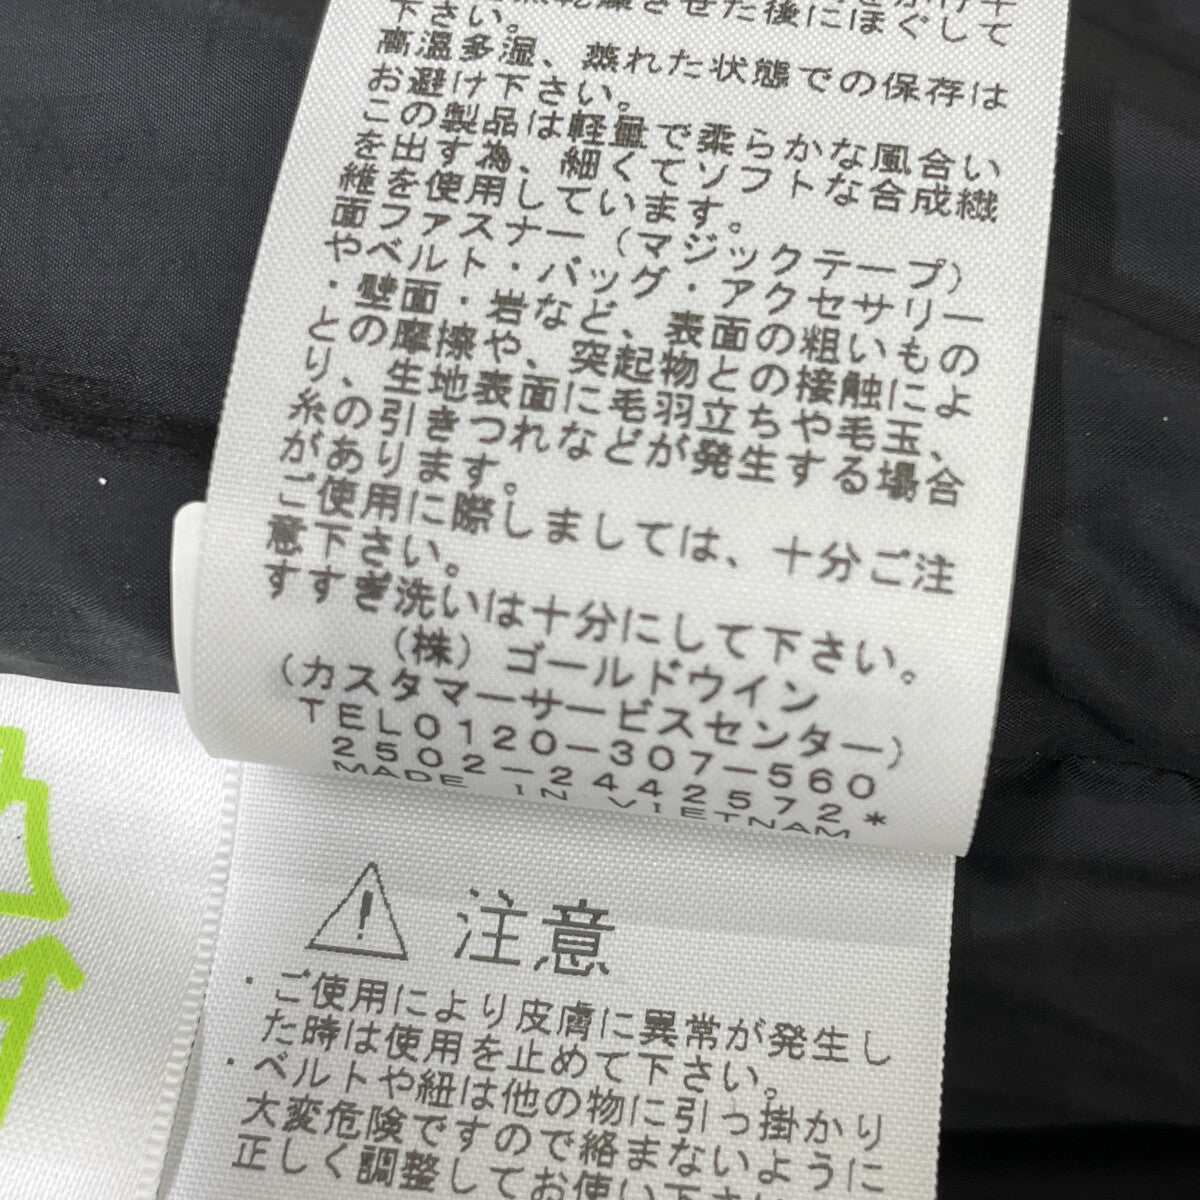 乾燥させた後にほぐして
下さい。
高温多湿、蒸れた状態での保存は
お避け下さい。
この製品は軽量で柔らかな風合い
を出す為、細くてソフトな合成繊
維を使用しています。
面ファスナー（マジックテープ）
やベルト・バッグ・アクセサリー
・壁面・岩など、表面の粗いもの
との摩擦や、突起物との接触によ
り、生地表面に毛羽立ちや毛玉、
糸の引きつれなどが発生する場合
があります。
ご使用に際しましては、十分ご注
意下さい。
すすぎ洗いは十分にして下さい。
（株）ゴールドウイン
（カスタマーサービスセンター）
TEL0120-307-560
2502-2442572*
MADE IN VIETNAM
注意
・ご使用により皮膚に異常が発生し
た時は使用を止めて下さい。
・ベルトや紐は他の物に引っ掛かり
大変危険ですので絡まないように
正しく調整してお使い下さい